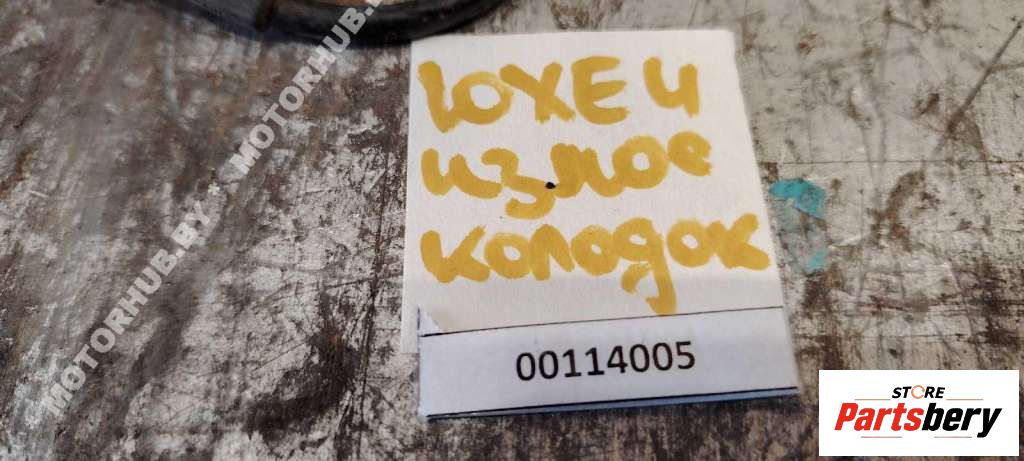 MOTORHUB.BY * MOTORHUB.BY
10XE4
износ
колодок
00114005
STORE
Partsbery